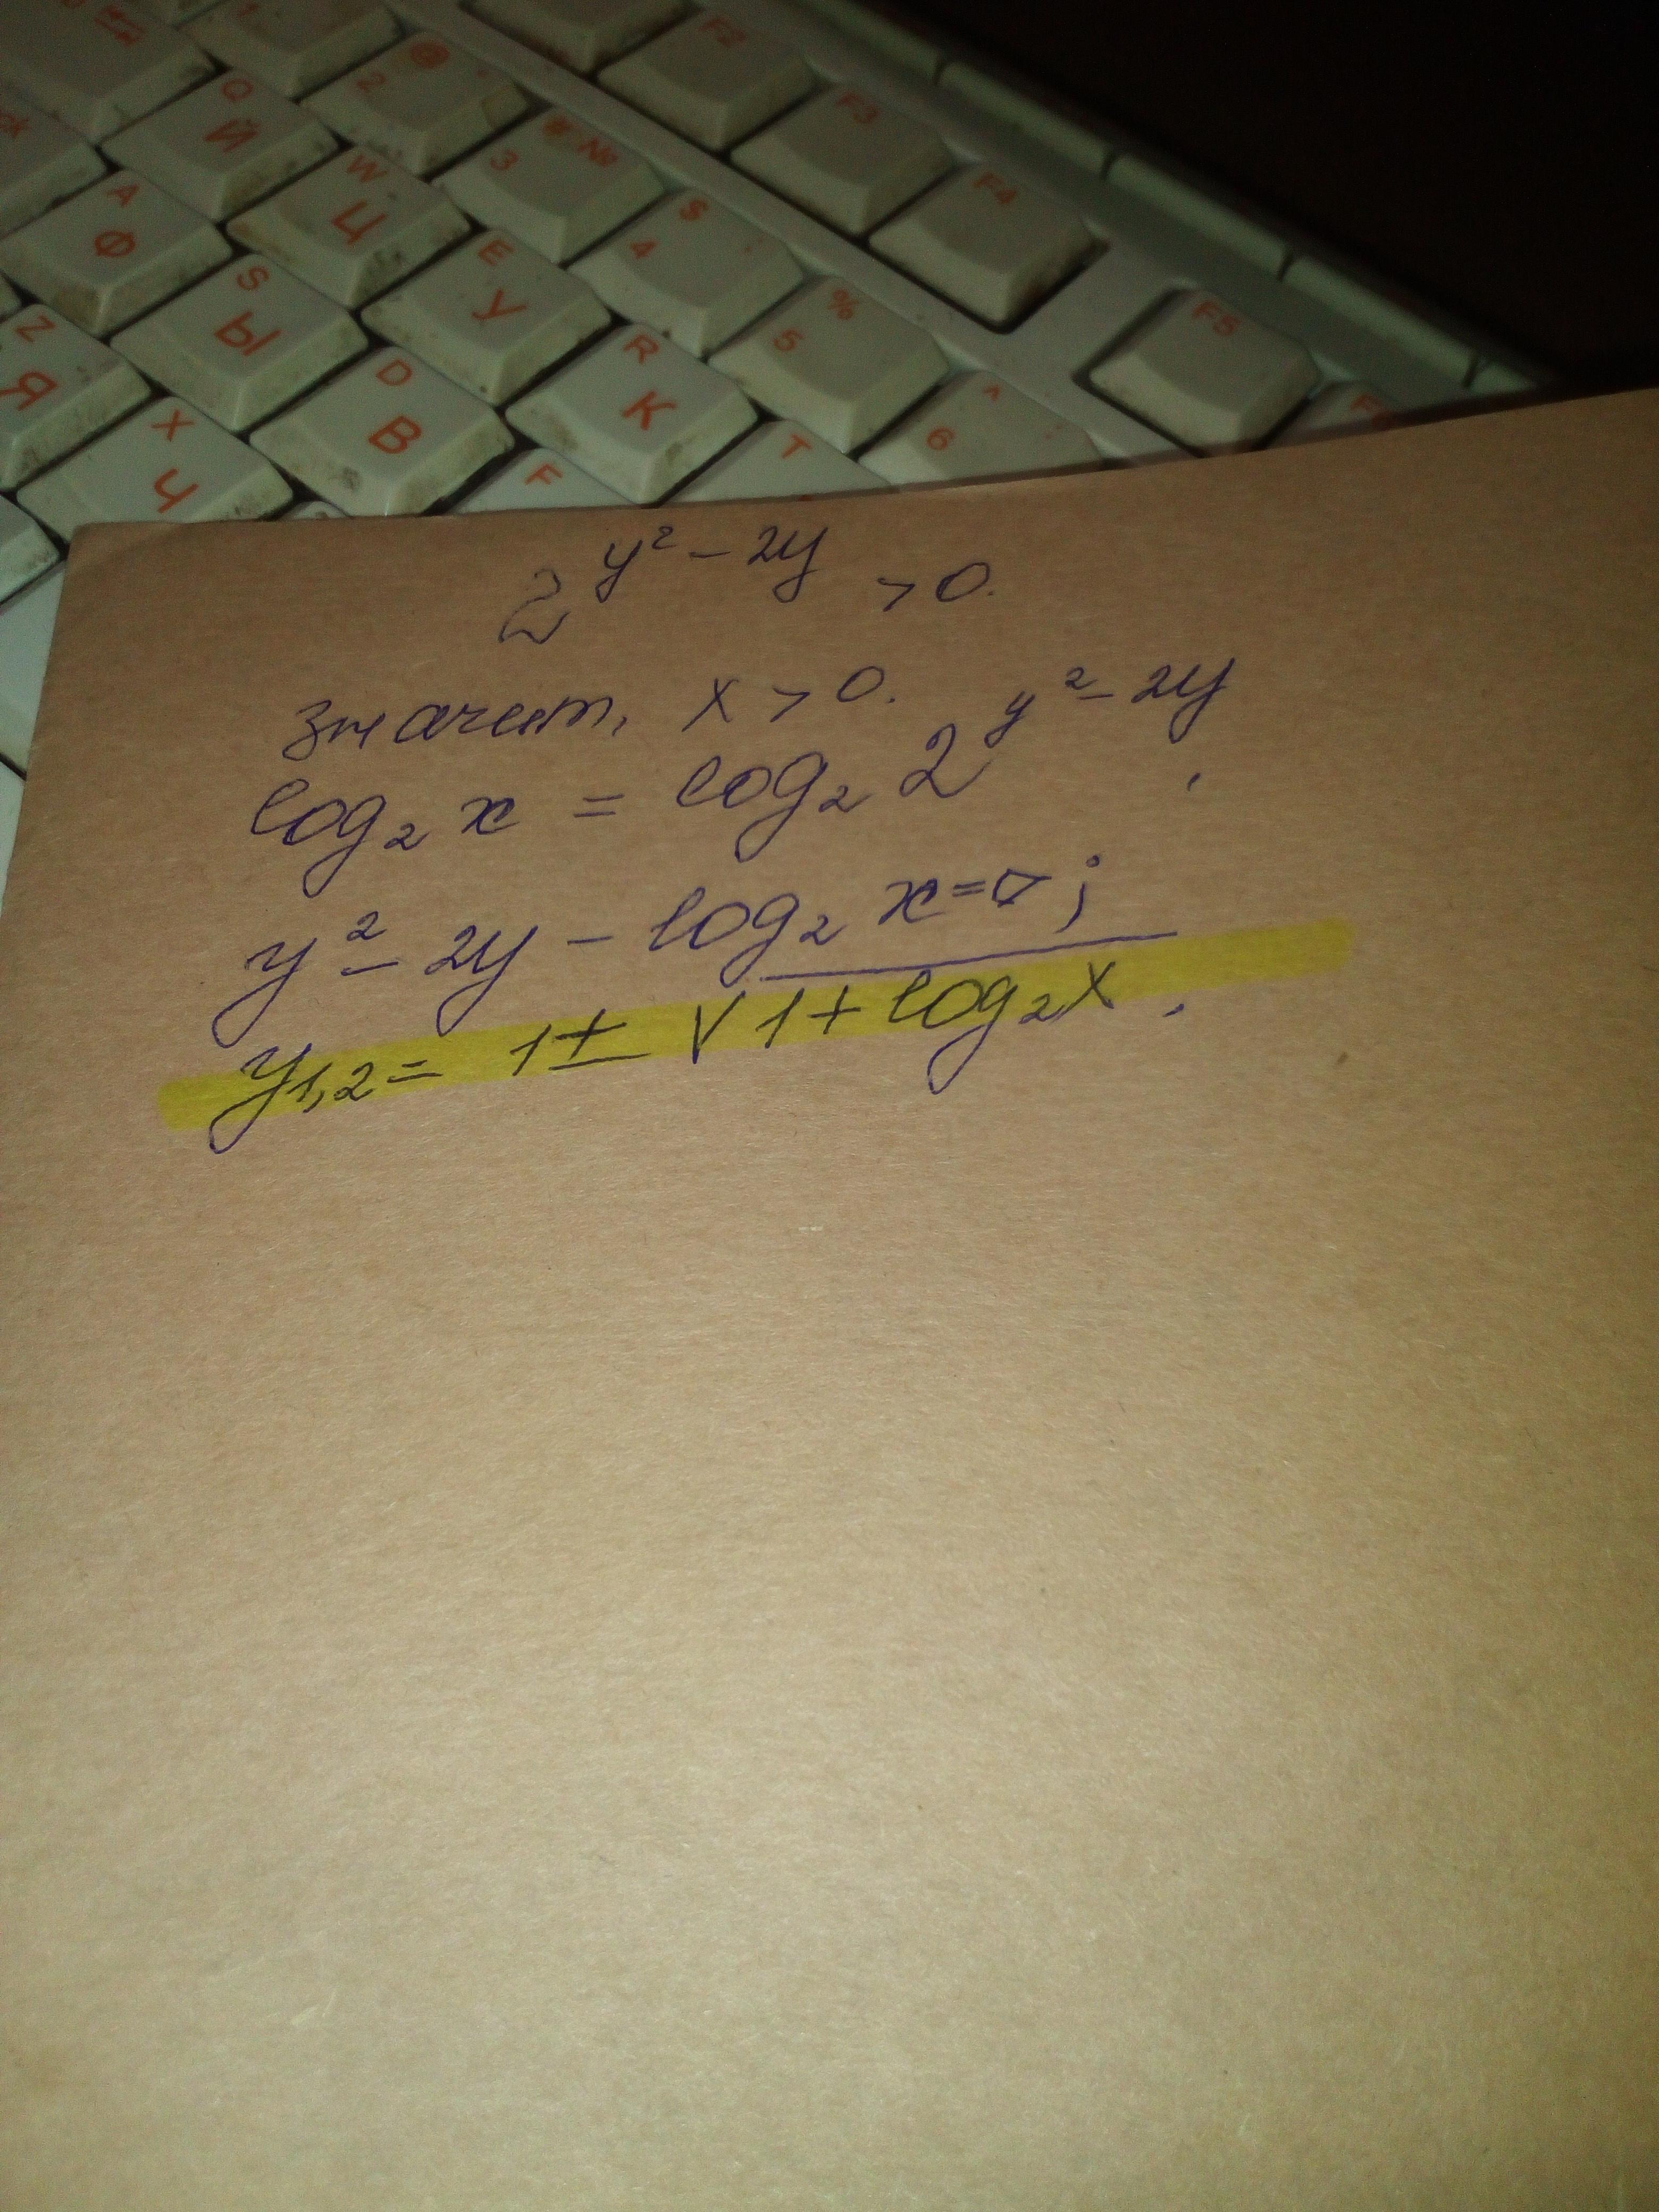 F2
F3
F4
F5
1
@ 2
# № 3
$ 4
% 5
^ 6
Q Й
W Ц
E У
R К
T
A Ф
S Ы
D В
F
Z Я
X Ч
2^(y² − 2y) > 0.
значит, x > 0.
log₂ x = log₂ 2^(y² − 2y),
y² − 2y − log₂ x = 0;
y₁,₂ = 1 ± √(1 + log₂ x).